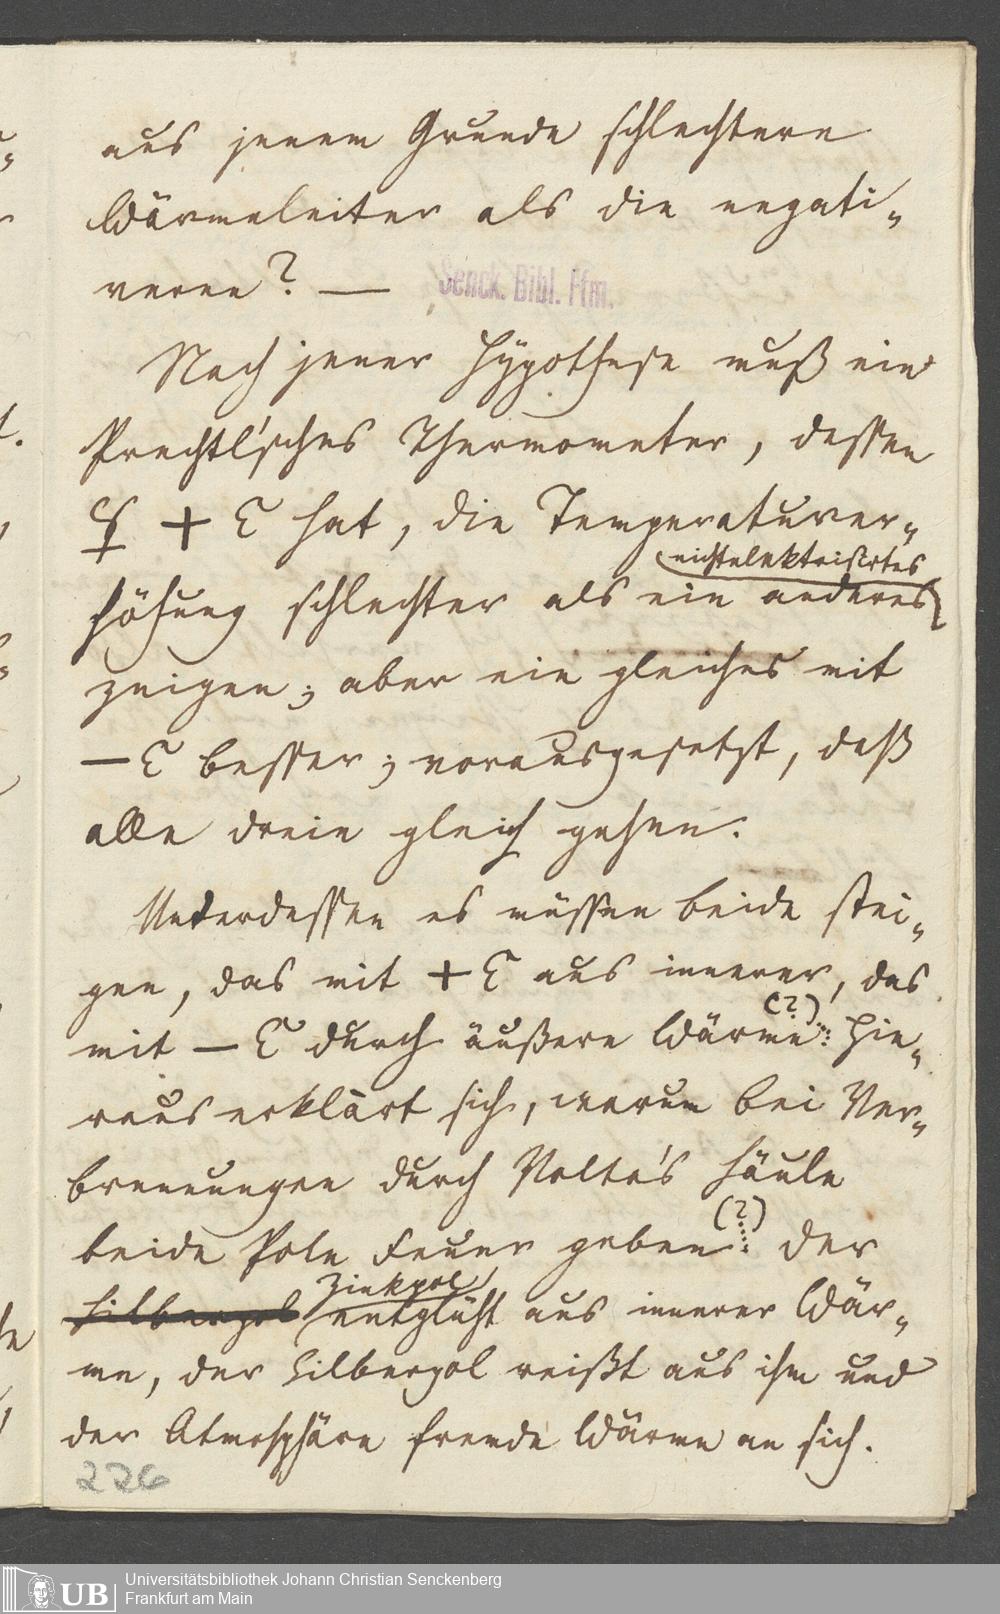 aus jenem Grunde schlechtere
Wärmeleiter als die negati-
veren? —
Senck. Bibl. Ffm.
Nach jener Hypothese muß ein
Prechtl'sches Thermometer, dessen
☿ + E hat, die Temperaturer-
nichtelektrisirtes
höhung schlechter als ein anderes
zeigen; aber ein gleiches mit
— E besser; vorausgesetzt, daß
alle drein gleich gehen.
Unterdessen es müssen beide stei-
gen, das mit + E aus innerer, das
mit — E durch äußere Wärme (?). Hie-
raus erklärt sich, warum bei Ver-
brennungen durch Volta's Säule
beide Pole Feuer geben (?). Der
Silberpol Zinkpol entglüht aus innerer Wär-
me, der Silberpol reißt aus ihm und
der Atmosphäre fremde Wärme an sich.
226
UB
Universitätsbibliothek Johann Christian Senckenberg
Frankfurt am Main